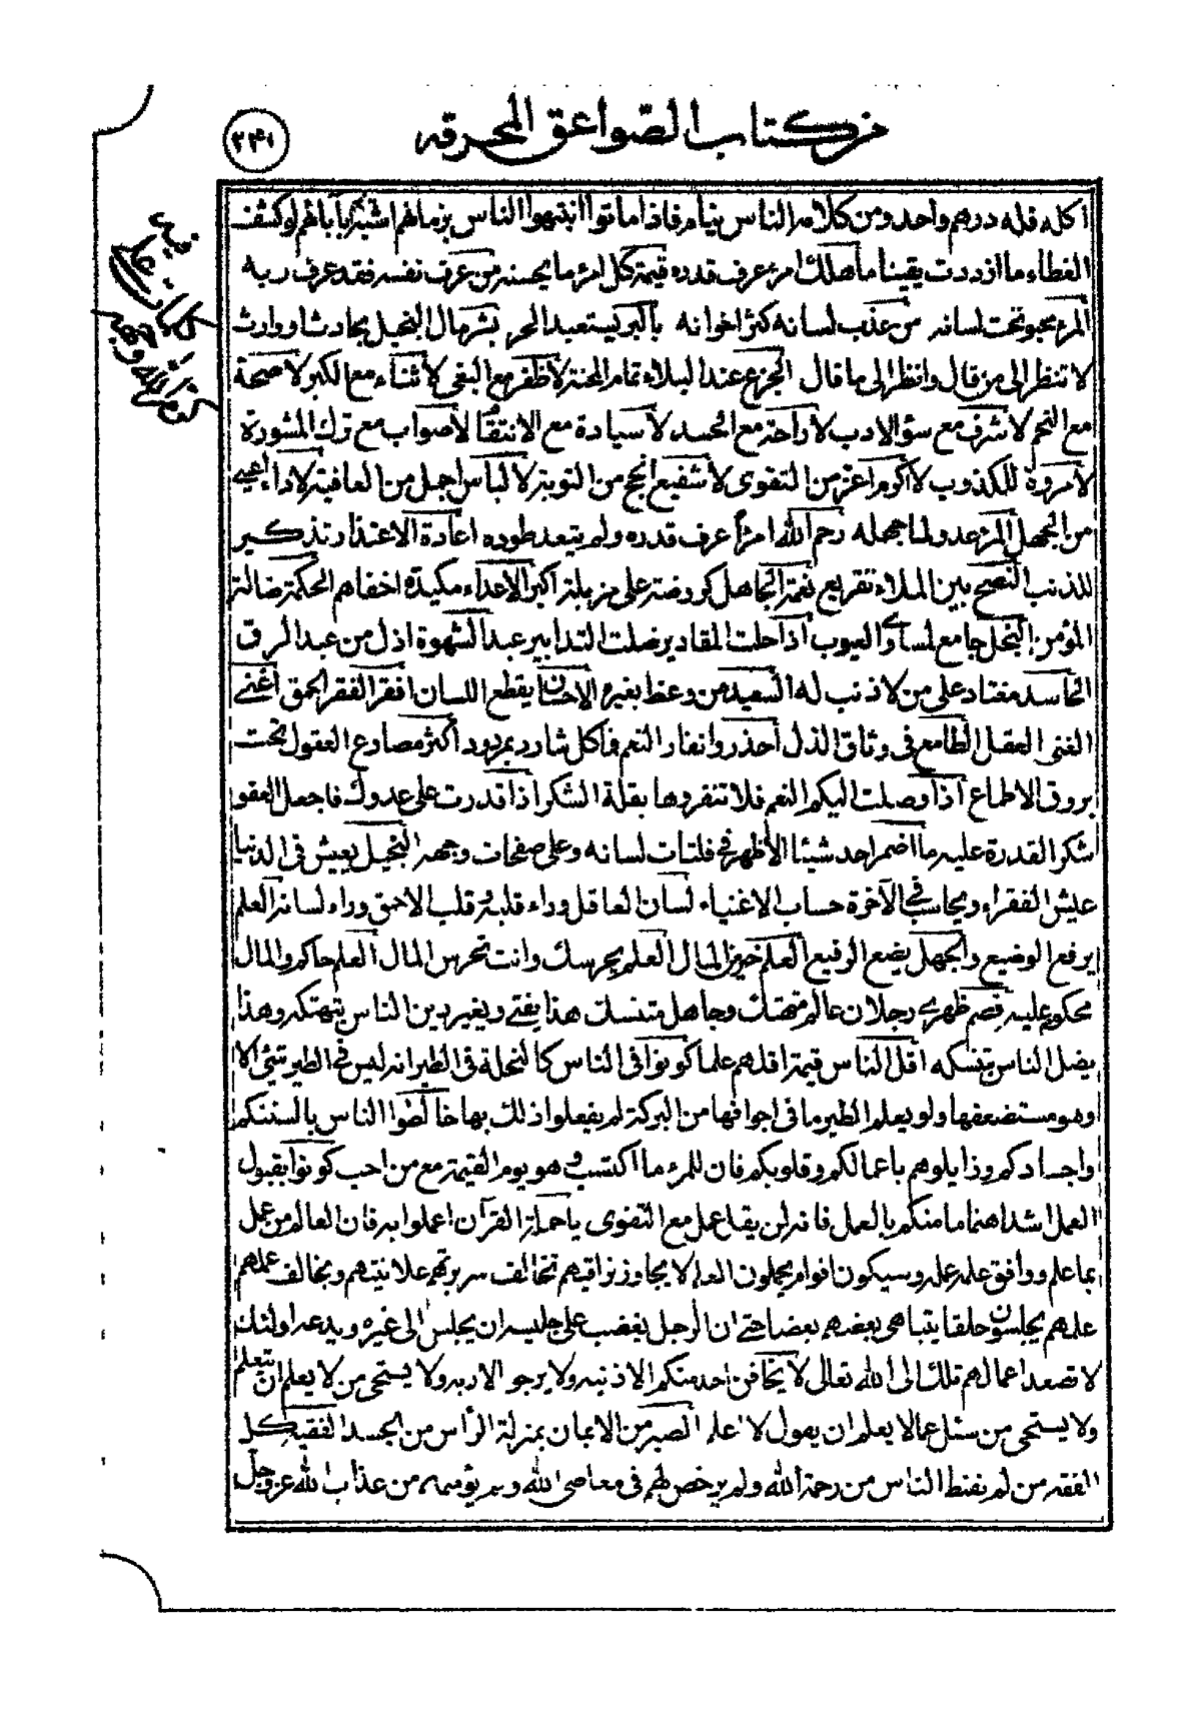 من كتاب الصواعق المحرقه
٢٣١
فى
كلمات على
كرم الله وجهه
اكله فله درهم واحد ومن كلامه الناس نيام فاذا ماتوا انتبهوا الناس بزمانهم اشبه بآبائهم لو كشف
الغطاء ما ازددت يقينا ما هلك امرء عرف قدره قيمة كل امرء ما يحسنه من عرف نفسه فقد عرف ربه
المرء مخبو تحت لسانه من عذب لسانه كثر اخوانه بالبر يستعبد الحر بشر مال البخيل بحادث او وارث
لا تنظر الى من قال وانظر الى ما قال الجزع عند البلاء تمام المحنة لا ظفر مع البغى لا ثناء مع الكبر لا صحة
مع النخم لا شرف مع سؤ الادب لا راحة مع الحسد لا سيادة مع الانتقام لا صواب مع ترك المشورة
لا مروة للكذوب لا كرم اعز من التقوى لا شفيع انجح من التوبة لا لباس اجمل من العافية لا داء اعيى
من الجهل المرء عدو لما جهله رحم الله امرأ عرف قدره ولم يتعد طوره اعادة الاعتذار تذكير
للذنب النصح بين الملاء تقريع نعمة الجاهل كروضة على مزبلة اكبر الاعداء مكيدة اخفاهم الحكمة ضالة
المؤمن البخل جامع لمساوى العيوب اذا حلت المقادير ضلت التدابير عبد الشهوة اذل من عبد الرق
الحاسد مغتاد على من لا ذنب له السعيد من وعظ بغيره الاحسان يقطع اللسان افقر الفقر الحمق اغنى
الغنى العقل الطامع فى وثاق الذل احذروا نفار النعم فما كل شارد بمردود اكثر مصارع العقول تحت
بروق الاطماع اذا وصلت اليكم النعم فلا تنفروها بقلة الشكر اذا قدرت على عدوك فاجعل العفو
شكر القدرة عليه ما اضمر احد شيئا الا ظهر فى فلتات لسانه وعلى صفحات وجهه البخيل يعيش فى الدنيا
عيش الفقراء ويحاسب فى الآخرة حساب الاغنياء لسان العاقل وراء قلبه وقلب الاحمق وراء لسانه العلم
يرفع الوضيع والجهل يضع الرفيع العلم خير من المال العلم يحرسك وانت تحرس المال العلم حاكم والمال
محكوم عليه قصم ظهرى رجلان عالم متهتك وجاهل متنسك هذا يفتى ويغير دين الناس بتهتكه وهذا
يضل الناس بتنسكه اقل الناس قيمة اقلهم علما كونوا فى الناس كالنحلة فى الطير انه ليس فى الطير شئ الا
وهو مستضعفها ولو يعلم الطير ما فى اجوافها من البركة لم يفعلوا ذلك بها خالطوا الناس بالسنتكم
واجسادكم وزايلوهم باعمالكم وقلوبكم فان للمرء ما اكتسب وهو يوم القيمة مع من احب كونوا بقبول
العمل اشد اهتماما منكم بالعمل فانه لن يقل عمل مع التقوى يا حملة القرآن اعملوا به فان العالم من عمل
بما علم ووافق علمه عمله وسيكون اقوام يحملون العلم لا يجاوز تراقيهم تخالف سريرتهم علانيتهم ويخالف عملهم
علمهم يجلسون حلقا يتباهى بعضهم بعضا حتى ان الرجل يغضب على جليسه ان يجلس الى غيره ويدعه اولئك
لا تصعد اعمالهم تلك الى الله تعالى لا يخافن احد منكم الا ذنبه ولا يرجو الا ربه ولا يستحى من لا يعلم ان يتعلم
ولا يستحى من سئل عما لا يعلم ان يقول لا اعلم الصبر من الايمان بمنزلة الرأس من الجسد الفقيه كل
الفقه من لم يقنط الناس من رحمة الله ولم يرخص لهم فى معاصى الله ولم يؤمنهم من عذاب الله عز وجل